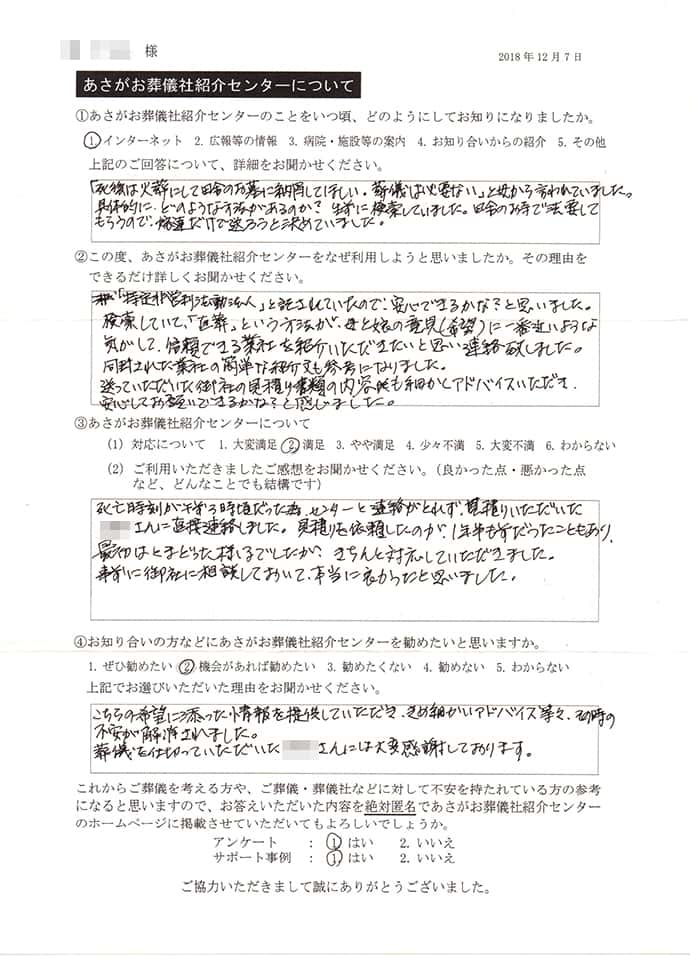 様
2018年12月7日
あさがお葬儀社紹介センターについて
①あさがお葬儀社紹介センターのことをいつ頃、どのようにしてお知りになりましたか。
①インターネット 2. 広報等の情報 3. 病院・施設等の案内 4. お知り合いからの紹介 5. その他
上記のご回答について、詳細をお聞かせください。
「死後は火葬にして田舎のお墓に納骨してほしい。葬儀は必要ない」と母から言われていました。
具体的に、どのような方法があるのか？生前に検索していました。田舎のお寺で法要して
もらうので、帰還だけで送ろうと決めていました。
②この度、あさがお葬儀社紹介センターをなぜ利用しようと思いましたか。その理由を
できるだけ詳しくお聞かせください。
「特定非営利活動法人」と記されていたので、安心できるかな？と思いました。
検索していて、「直葬」という方法が、母と娘の意見(希望)に一番近いような
気がして、信頼できる業社を紹介いただきたいと思い連絡致しました。
同封された業社の簡単な紹介文も参考になりました。
送っていただいた御社の見積り書類の内容も細かくアドバイスいただき、
安心してお願いできるかな？と感じました。
③あさがお葬儀社紹介センターについて
(1) 対応について 1. 大変満足 ②満足 3. やや満足 4. 少々不満 5. 大変不満 6. わからない
(2) ご利用いただきましたご感想をお聞かせください。（良かった点・悪かった点
など、どんなことでも結構です）
死亡時刻が朝3時頃だった為、センターと連絡がとれず、見積りいただいた
さんに直接連絡しました。見積りを依頼したのが、1年半も前だったこともあり、
最初はとまどった様子でしたが、きちんと対応していただきました。
事前に御社に相談しておいて、本当に良かったと思いました。
④お知り合いの方などにあさがお葬儀社紹介センターを勧めたいと思いますか。
1. ぜひ勧めたい ②機会があれば勧めたい 3. 勧めたくない 4. 勧めない 5. わからない
上記でお選びいただいた理由をお聞かせください。
こちらの希望に添った情報を提供していただき、きめ細かいアドバイス等々、その時の
不安が解消されました。
葬儀を仕切っていただいた さんには大変感謝しております。
これからご葬儀を考える方や、ご葬儀・葬儀社などに対して不安を持たれている方の参考
になると思いますので、お答えいただいた内容を絶対匿名であさがお葬儀社紹介センター
のホームページに掲載させていただいてもよろしいでしょうか。
アンケート ： ①はい 2. いいえ
サポート事例 ： ①はい 2. いいえ
ご協力いただきまして誠にありがとうございました。